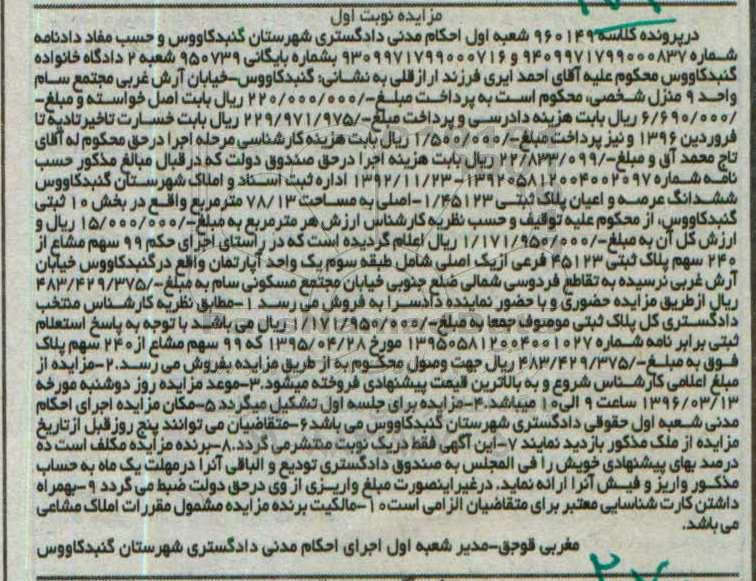 مزایده نوبت اول
درپرونده کلاسه ۹۶۰۱۴۹ شعبه اول احکام مدنی دادگستری شهرستان گنبدکاووس و حسب مفاد دادنامه
شماره ۹۴۰۹۹۷۱۷۹۹۰۰۰۸۳۷ و ۹۳۰۹۹۷۱۷۹۹۰۰۰۷۱۶ بشماره بایگانی ۹۵۰۷۳۹ شعبه ۲ دادگاه خانواده
گنبدکاووس محکوم علیه آقای احمد ایری فرزند ارازقلی به نشانی: گنبدکاووس-خیابان آرش غربی مجتمع سام
واحد ۹ منزل شخصی، محکوم است به پرداخت مبلغ-/۲۲۰/۰۰۰/۰۰۰ ریال بابت اصل خواسته و مبلغ-
/۶/۶۹۰/۰۰۰ ریال بابت هزینه دادرسی و پرداخت مبلغ-/۲۲۹/۹۷۱/۹۷۵ ریال بابت خسارت تاخیرتادیه تا
فروردین ۱۳۹۶ و نیز پرداخت مبلغ-/۱/۵۰۰/۰۰۰ ریال بابت هزینه کارشناسی مرحله اجرا درحق محکوم له آقای
تاج محمد آق و مبلغ-/۲۲/۸۳۳/۰۹۹ ریال بابت هزینه اجرا درحق صندوق دولت که درقبال مبالغ مذکور حسب
نامه شماره ۱۳۹۲۰۵۸۱۲۰۰۴۰۰۲۰۹۷-۱۳۹۲/۱۱/۲۳ اداره ثبت اسناد و املاک شهرستان گنبدکاووس
ششدانگ عرصه و اعیان پلاک ثبتی ۱/۴۵۱۲۳-اصلی به مساحت ۷۸/۱۳ مترمربع واقع در بخش ۱۰ ثبتی
گنبدکاووس، از محکوم علیه توقیف و حسب نظریه کارشناس ارزش هر مترمربع به مبلغ-/۱۵/۰۰۰/۰۰۰ ریال و
ارزش کل آن به مبلغ-/۱/۱۷۱/۹۵۰/۰۰۰ ریال اعلام گردیده است که در راستای اجرای حکم ۹۹ سهم مشاع از
۲۴۰ سهم پلاک ثبتی ۴۵۱۲۳ فرعی ازیک اصلی شامل طبقه سوم یک واحد آپارتمان واقع درگنبدکاووس خیابان
آرش غربی نرسیده به تقاطع فردوسی شمالی ضلع جنوبی خیابان مجتمع مسکونی سام به مبلغ-/۴۸۳/۴۲۹/۳۷۵
ریال ازطریق مزایده حضوری و با حضور نماینده دادسرا به فروش می رسد ۱-مطابق نظریه کارشناس منتخب
دادگستری کل پلاک ثبتی موصوف جمعا به مبلغ-/۱/۱۷۱/۹۵۰/۰۰۰ ریال می باشد با توجه به پاسخ استعلام
ثبتی برابر نامه شماره ۱۳۹۵۰۵۸۱۲۰۰۴۰۰۱۰۲۷ مورخ ۱۳۹۵/۰۴/۲۸ که ۹۹ سهم مشاع از۲۴۰ سهم پلاک
فوق به مبلغ-/۴۸۳/۴۲۹/۳۷۵ ریال جهت وصول محکوم به از طریق مزایده بفروش می رسد.۲-مزایده از
مبلغ اعلامی کارشناس شروع و به بالاترین قیمت پیشنهادی فروخته میشود.۳-موعد مزایده روز دوشنبه مورخه
۱۳۹۶/۰۳/۱۳ ساعت ۹ الی۱۰ میباشد.۴-مزایده برای جلسه اول تشکیل میگردد ۵-مکان مزایده اجرای احکام
مدنی شعبه اول حقوقی دادگستری شهرستان گنبدکاووس می باشد۶-متقاضیان می توانند پنج روزقبل ازتاریخ
مزایده از ملک مذکور بازدید نمایند ۷-این آگهی فقط دریک نوبت منتشرمی گردد.۸-برنده مزایده مکلف است ده
درصد بهای پیشنهادی خویش را فی المجلس به صندوق دادگستری تودیع و الباقی آنرا درمهلت یک ماه به حساب
مذکور واریز و فیش آنرا ارائه نماید. درغیراینصورت مبلغ واریزی از وی درحق دولت ضبط می گردد ۹-بهمراه
داشتن کارت شناسایی معتبر برای متقاضیان الزامی است۱۰-مالکیت برنده مزایده مشمول مقررات املاک مشاعی
می باشد.
مغربی قوجق-مدیر شعبه اول اجرای احکام مدنی دادگستری شهرستان گنبدکاووس